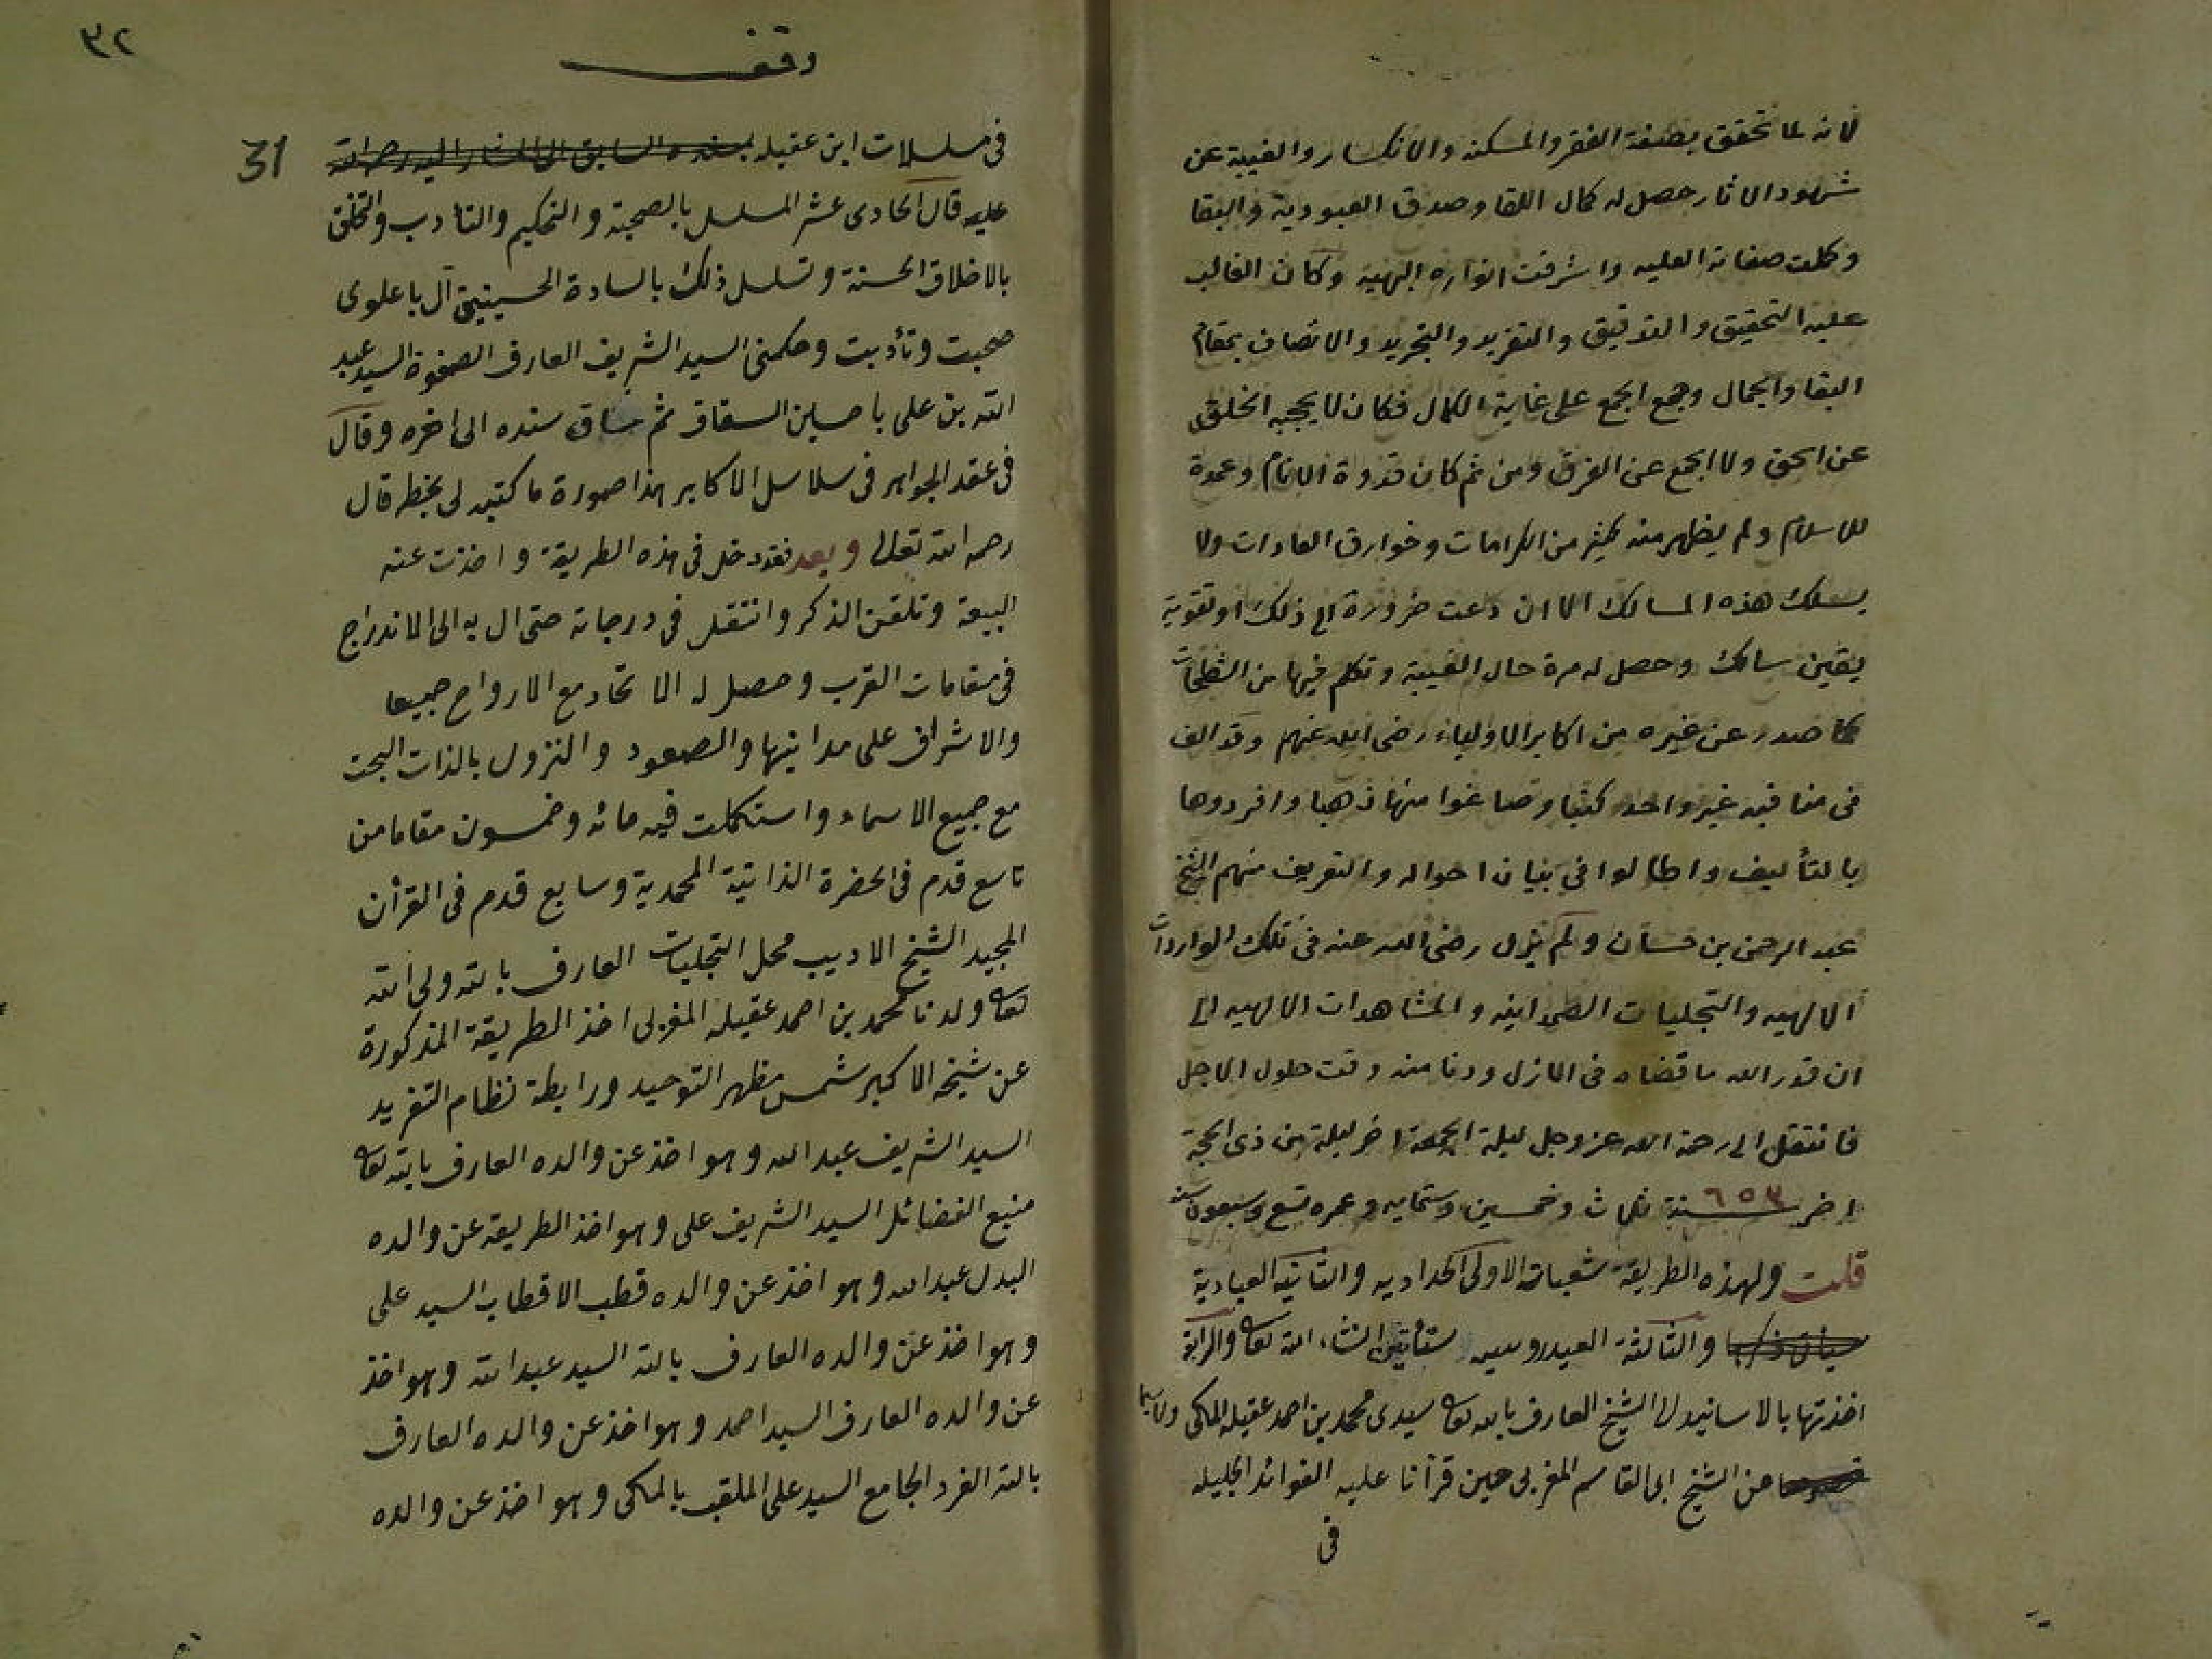 لانه لما تحقق بصفة الفقر والمسكنه والانكسار والغيبية عن
شهود الاثار حصل له كمال اللقا وصدق العبودية والبقا
وكملت صفاته العليه واشرقت انواره البهيه وكان الغالب
عليه التحقيق والتدقيق والتفريد والتجريد والاتصاف بمقام
البقا والجمال وجمع الجمع على غاية الكمال فكان لا يحجبه الخلق
عن الحق ولا الجمع عن الفرق ومن ثم كان قدوة الانام وعمدة
للاسلام ولم يظهر منه كثير من الكرامات وخوارق العادات ولا
يسلك هذه المسالك الا ان دعت ضرورة الى ذلك او تقوية
يقين سالك وحصل له مرة حال الغيبة وتكلم فيها من الشطحات
كما صدر عن غيره من اكابر الاولياء رضى الله عنهم وقد الف
فى مناقبه غير واحد كتبا وصاغوا منها ذهبا وافردوها
بالتأليف واطالوا فى بنيان احواله والتعريف منهم الشيخ
عبد الرحمن بن حسان ولم يزل رضى الله عنه فى تلك الواردات
الالهيه والتجليات الصمدانيه والمشاهدات الالهيه الى
ان قدر الله ما قضاه فى الازل ودنا منه وقت حلول الاجل
فانتقل الى رحمة الله عز وجل ليلة الجمعة اخر ليلة من ذى الحجة
اخر سنة ٦٥٣ ثلاث وخمسين وستمايه وعمره تسع وسبعون سنه
قلت ولهذه الطريقة شعبات الاولى الحداديه والثانيه العبادية
والثالثه العيدروسيه ستأتى ان شاء الله تعا والرابعة
اخذتها بالاسانيد الى الشيخ العارف بالله تعا سيدى محمد بن احمد عقيله المكى ولاسيما
عن الشيخ ابى القاسم المغربى حين قرأنا عليه الفوائد الجليله
فى
وقف
٣٢
31
فى مسلسلات ابن عقيله بسنده السابق الى المشار اليه رحمة الله
عليه قال الحادى عشر المسلسل بالصحبة والتحكيم والتادب والتخلق
بالاخلاق الحسنة وتسلسل ذلك بالسادة الحسينيين آل باعلوى
صحبت وتأدبت وحكمنى السيد الشريف العارف الصفوة السيد عبد
الله بن على باحسين السقاف ثم ساق سنده الى اخره وقال
فى عقد الجواهر فى سلاسل الاكابر هذا صورة ما كتبه لى بخطه قال
رحمه الله تعالى وبعد فقد دخل فى هذه الطريقة واخذت عنه
البيعة وتلقن الذكر وانتقل فى درجاته حتى ال به الى الاندراج
فى مقامات القرب وحصل له الاتحاد مع الارواح جميعا
والاشراف على مداينها والصعود والنزول بالذات البحت
مع جميع الاسماء واستكملت فيه مائه وخمسون مقاما من
تاسع قدم فى الحضرة الذاتية المحمدية وسابع قدم فى القرأن
المجيد الشيخ الاديب محل التجليات العارف بالله ولى الله
تعا ولدنا محمد بن احمد عقيله المغربى اخذ الطريقة المذكورة
عن شيخه الاكبر شمس مظهر التوحيد ورابطة نظام التفريد
السيد الشريف عبد الله وهو اخذ عن والده العارف بالله تعا
منبع الفضائل السيد الشريف على وهو اخذ الطريقة عن والده
البدل عبد الله وهو اخذ عن والده قطب الاقطاب السيد على
وهو اخذ عن والده العارف بالله السيد عبد الله وهو اخذ
عن والده العارف السيد احمد وهو اخذ عن والده العارف
بالله الفرد الجامع السيد على الملقب بالمكى وهو اخذ عن والده